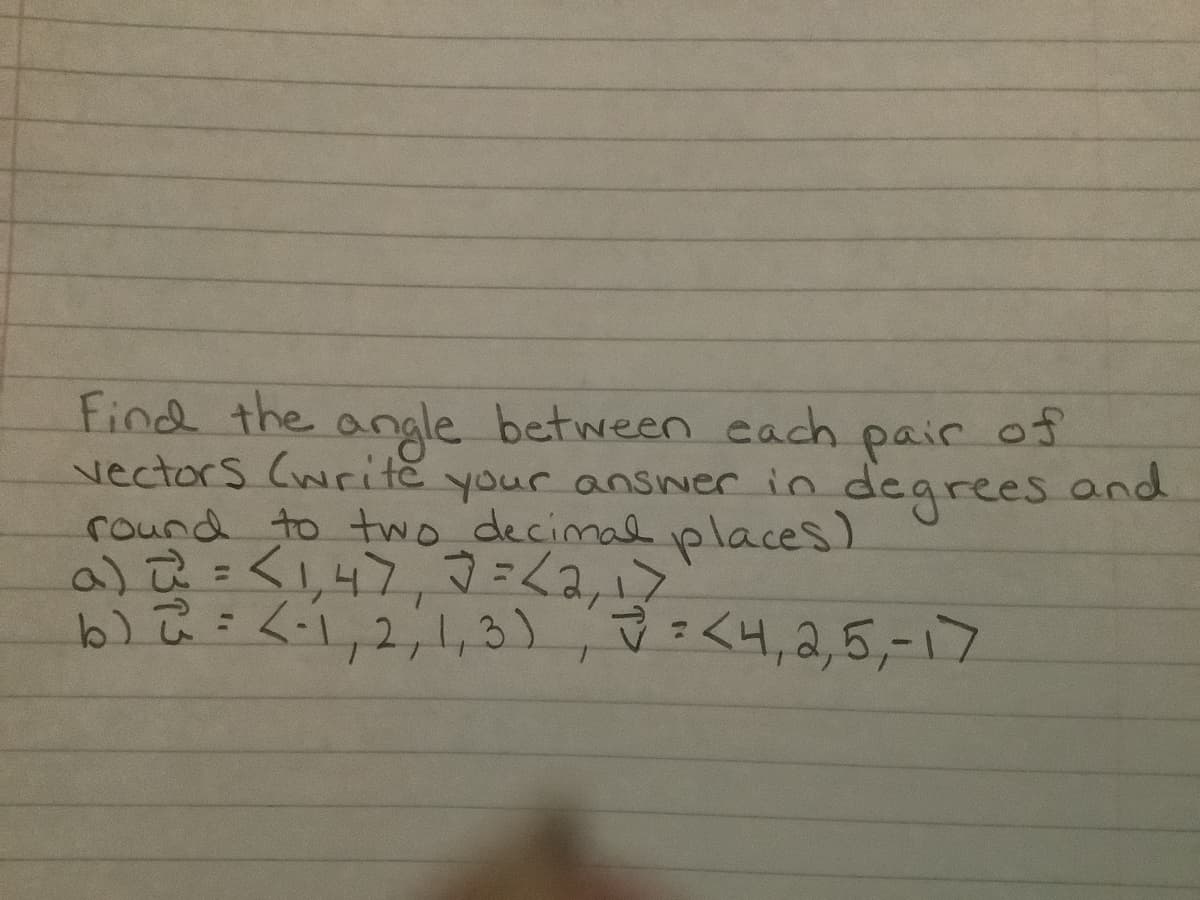 Find the angle between each pair of
vectors (write your answer in degrees and
round to two decimal places)
a) u⃗ = <1,4>, v⃗ = <2,1>
b) u⃗ = <-1,2,1,3), v⃗ = <4,2,5,-1>